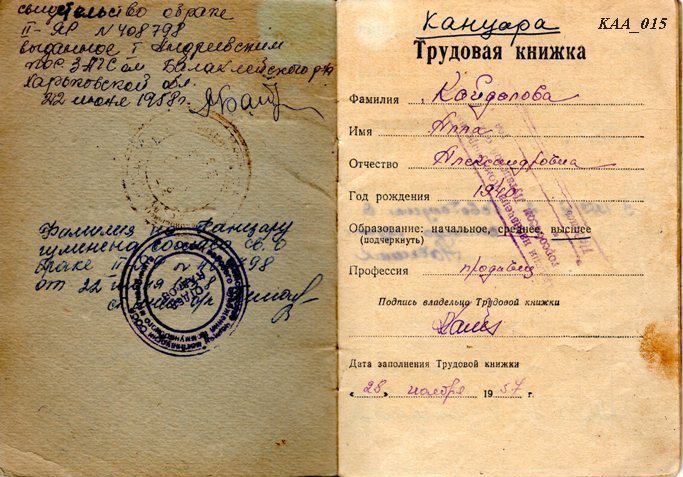 свидетельство о браке
II-ЯР N 408798
выданное Андреевским
пос. ЗАГСом Балаклейского р-на
Харьковской обл.
22 июня 1958г.
Фамилия на Канцару
св. о
браке II N 408798
от 22 июня
Канцара
КАА_015
Трудовая книжка
Фамилия Кайдалова
Имя
Отчество Александровна
Год рождения 1940
Образование: начальное, среднее, высшее
(подчеркнуть)
Профессия продавец
Подпись владельца Трудовой книжки
Дата заполнения Трудовой книжки
«28» ноября 1957 г.